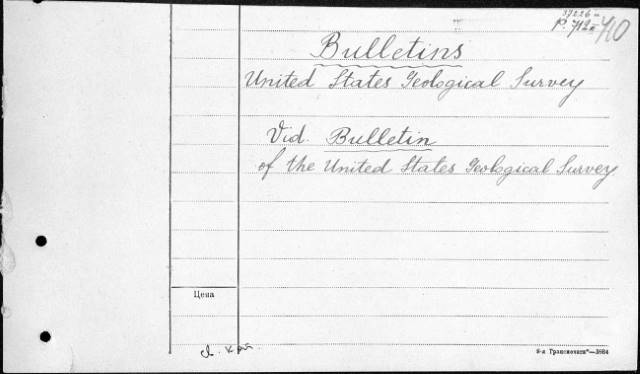 37226
P. 712 710
Bulletins
United States Geological Survey
Vid. Bulletin
of the United States Geological Survey
Цена